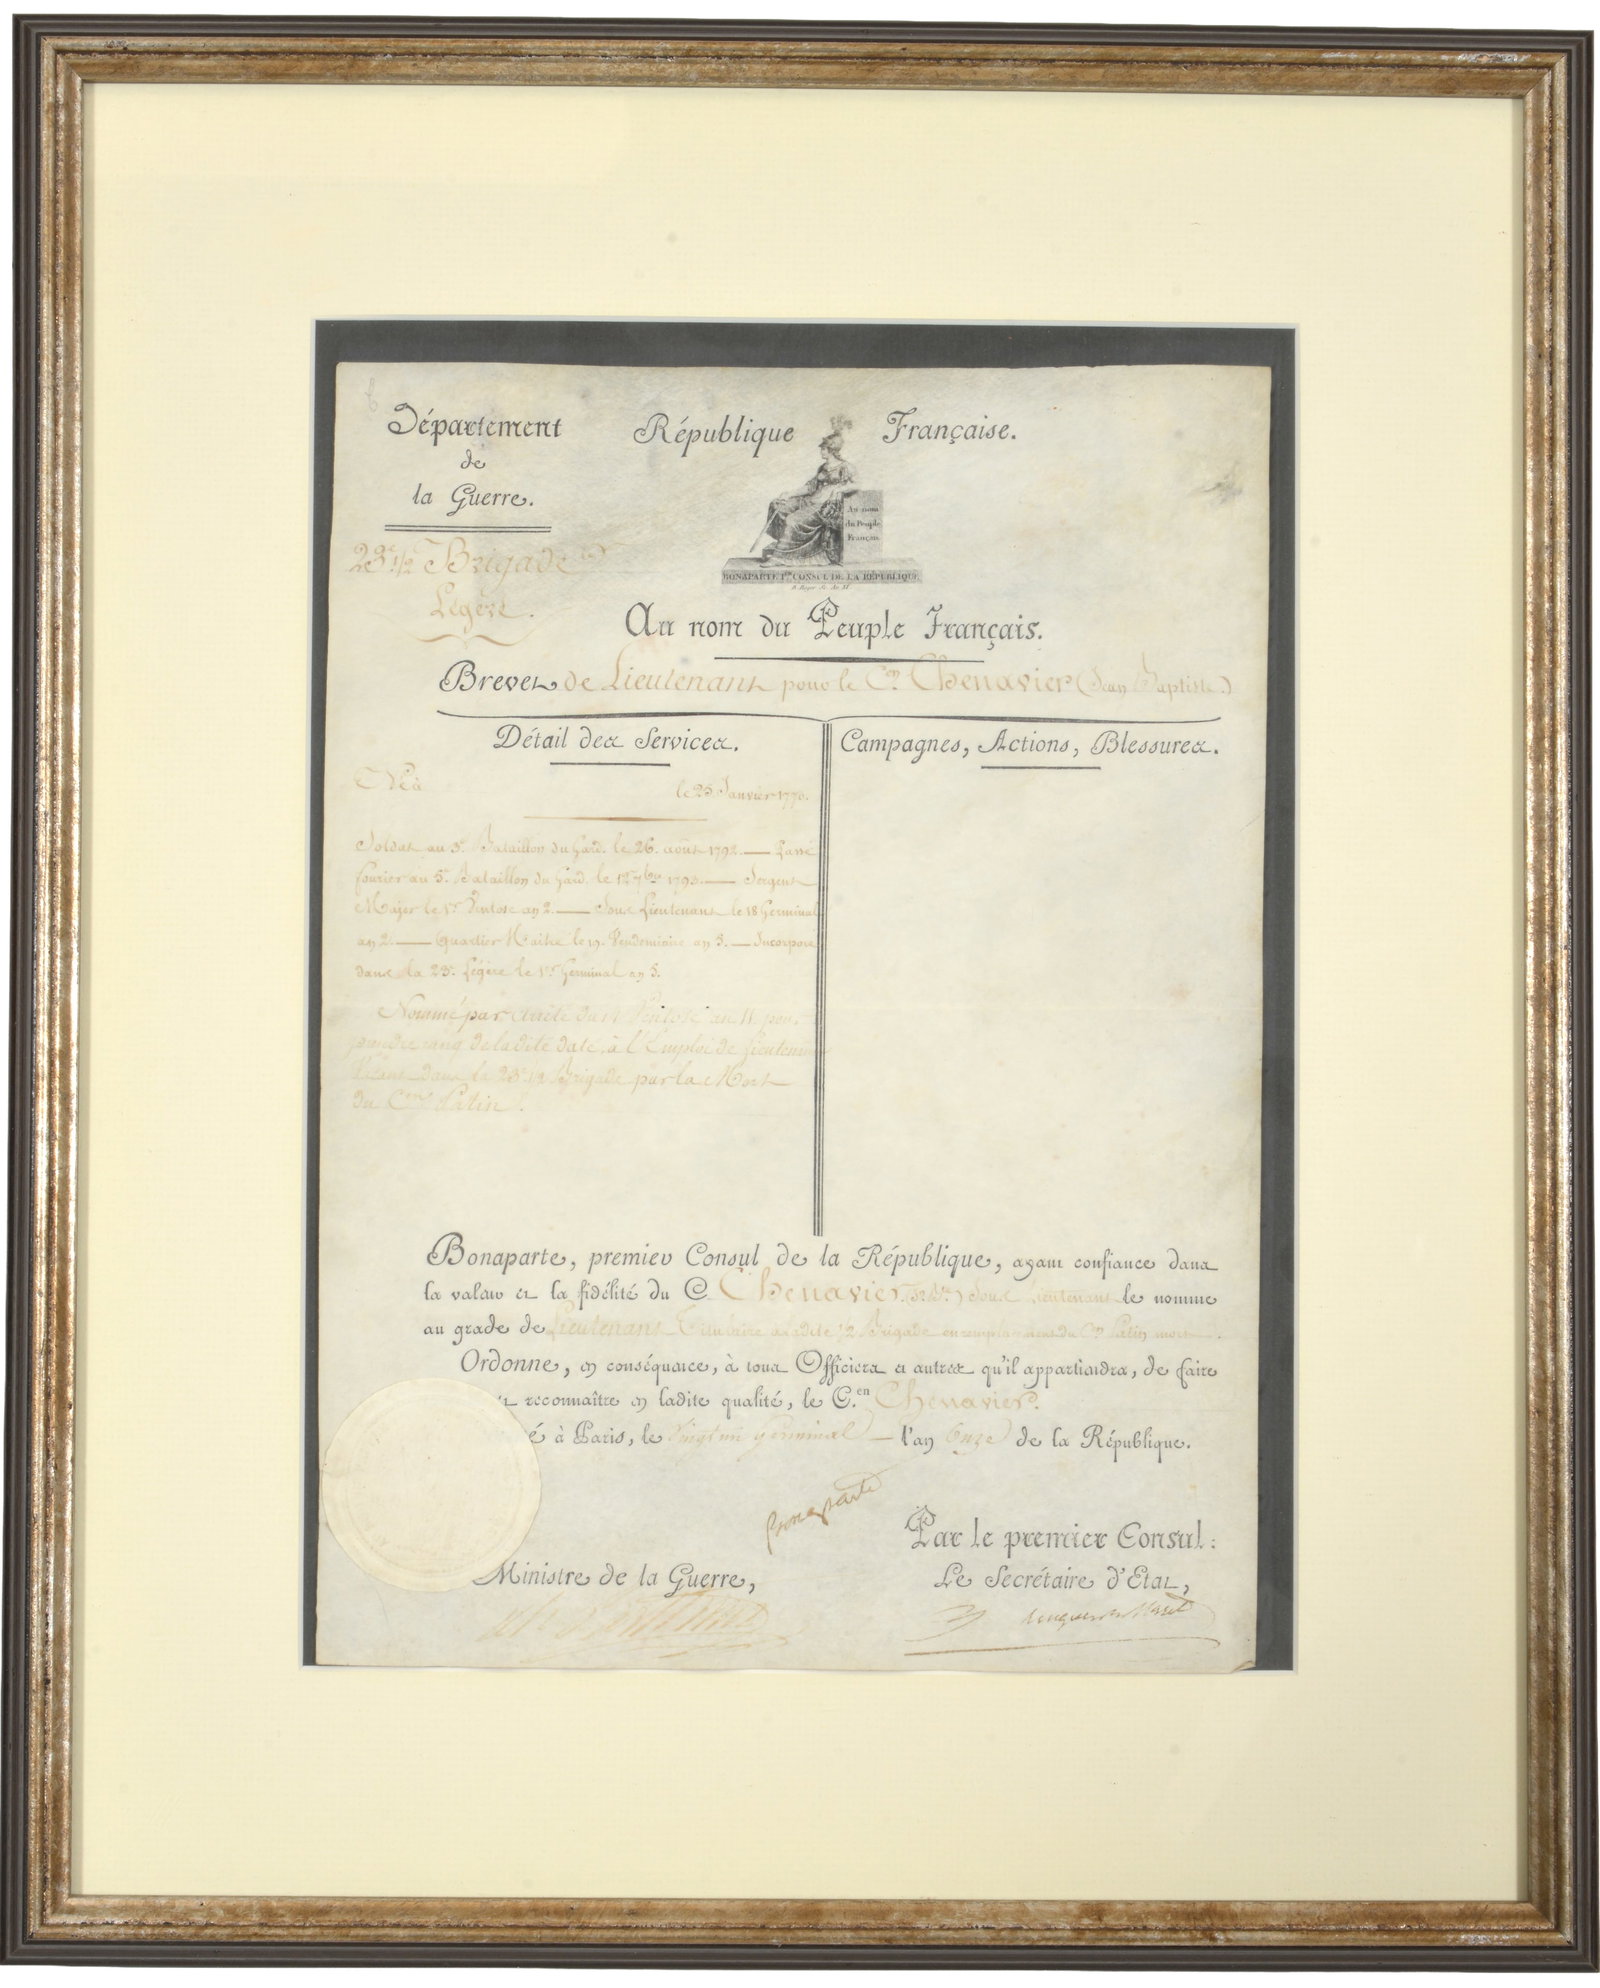 Département
de
la Guerre.
République Française.
Au nom
du Peuple
Français.
BONAPARTE 1er CONSUL DE LA RÉPUBLIQUE
23e 1/2 Brigade
Légère.
Au nom du Peuple Français.
Brevet de Lieutenant pour le Cen Chenavier (Jean Baptiste.)
Détail des Services.
Campagnes, Actions, Blessures.
Né à le 25 Janvier 1770.
Soldat au 3e Bataillon du Gard. le 26. août 1792. — Passé
fourier au 5e Bataillon du Gard. le 1er 7bre 1793. — Sergent
Major le 1er Ventose an 2. — Sous Lieutenant le 18 Germinal
an 2. — Quartier Maitre le Vendemiaire an 3. — Incorporé
dans la 23e Légère le 1er Germinal an 5.
Nommé par arrêté du Ventose an 11. pour
prendre rang de ladite date, à l'Emploi de Lieutenant
Vacant dans la 23e 1/2 Brigade par la Mort
du Cen Patin.
Bonaparte, premier Consul de la République, ayant confiance dans
la valeur et la fidélité du C. Chenavier Sous Lieutenant le nomme
au grade de Lieutenant Titulaire à ladite 1/2 Brigade en remplacement du Cen Patin mort.
Ordonne, en conséquence, à tous Officiers et autres qu'il appartiendra, de faire
reconnaître en ladite qualité, le C.en Chenavier.
é à Paris, le Vingt un germinal — l'an Onze de la République.
Bonaparte
Par le premier Consul:
Ministre de la Guerre,
Le Secrétaire d'Etat,
Hugues B. Maret